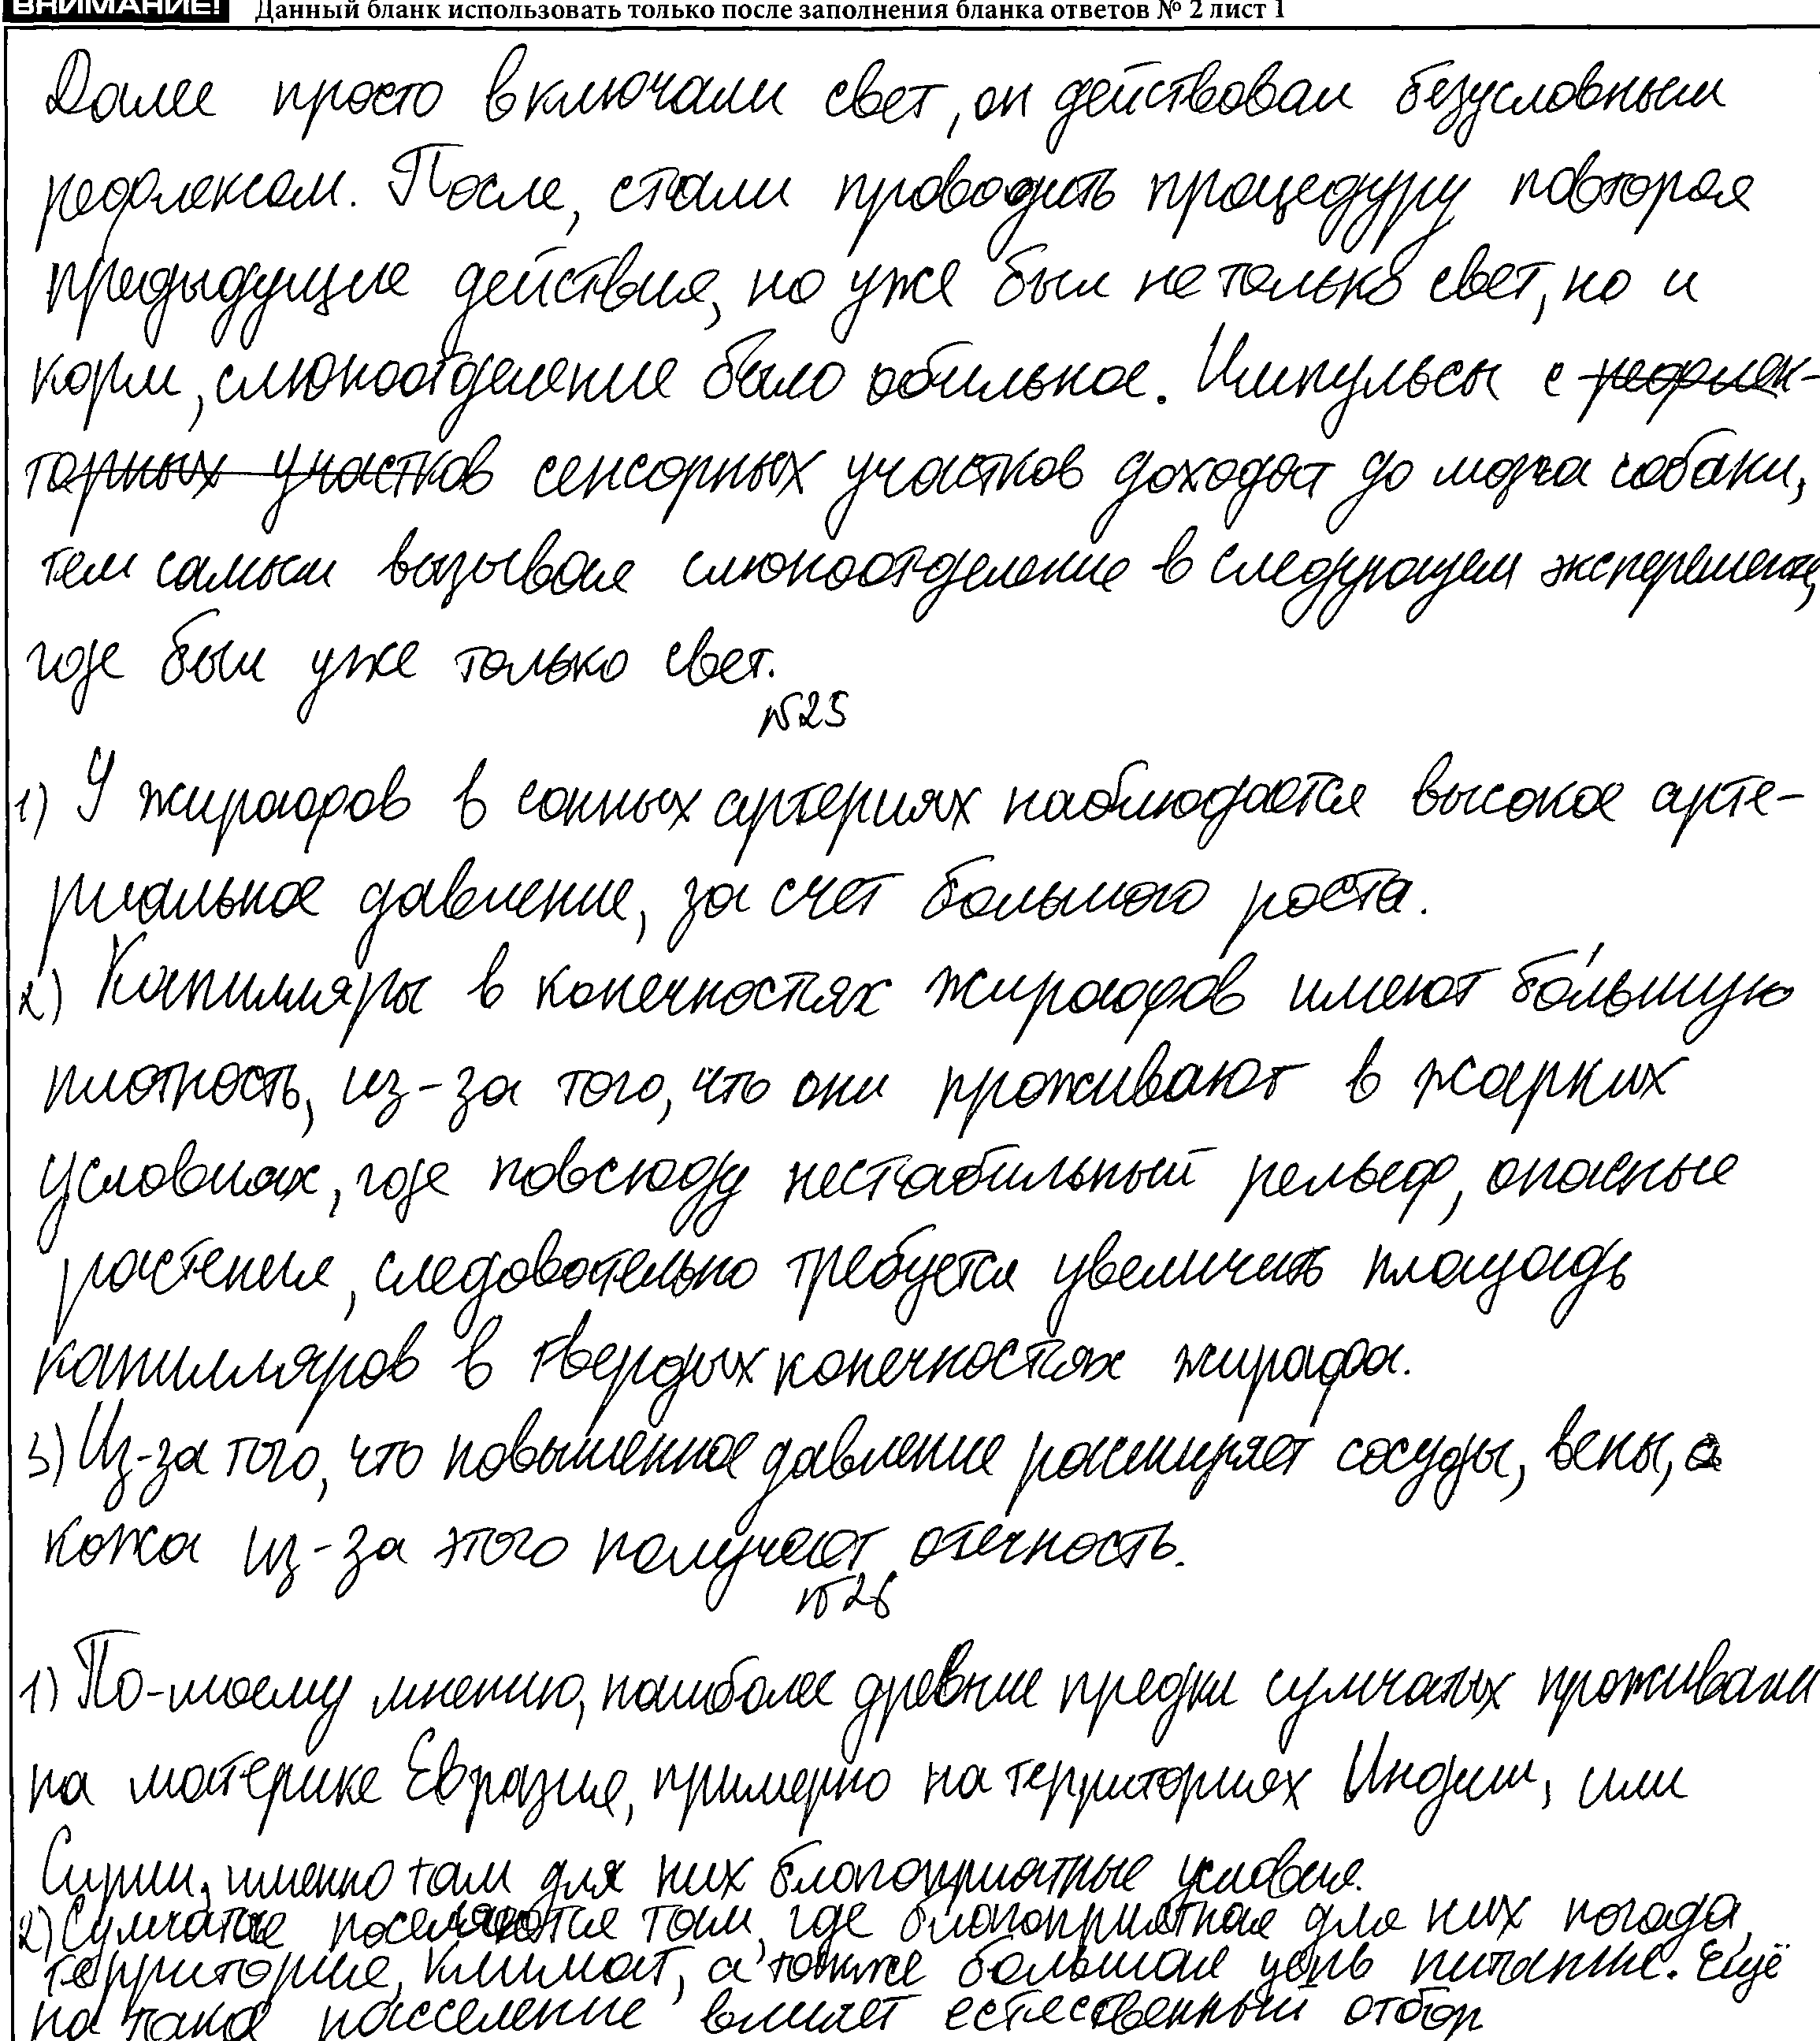 ВНИМАНИЕ! Данный бланк использовать только после заполнения бланка ответов № 2 лист 1
Далее просто включали свет, он действовал безусловным
рефлексом. После, стали проводить процедуру повторяя
предыдущие действия, но уже был не только свет, но и
корм, слюноотделение было обильное. Импульсы с рефлек-
торных участков сенсорных участков доходят до мозга собаки,
тем самым вызывая слюноотделение в следующем эксперементе,
где был уже только свет.
№25
1) У жирафов в сонных артериях наблюдается высокое арте-
риальное давление, за счет большого роста.
2) Капилляры в конечностях жирафов имеют бо́льшую
плотность, из-за того, что они проживают в жарких
условиях, где повсюду нестабильный рельеф, опасные
растения, следовательно требуется увеличить площадь
капилляров в твердых конечностях жирафа.
3) Из-за того, что повышенное давление расширяет сосуды, вены, а
кожа из-за этого получает отечность.
№26
1) По-моему мнению, наиболее древние предки сумчатых проживали
на материке Евразия, примерно на территориях Индии, или
Сирии, именно там для них благоприятные условия.
2) Сумчатые поселяются там, где благоприятная для них погода,
территория, климат, а также большая цепь питание. Ещё
на такое расселение влияет естественный отбор